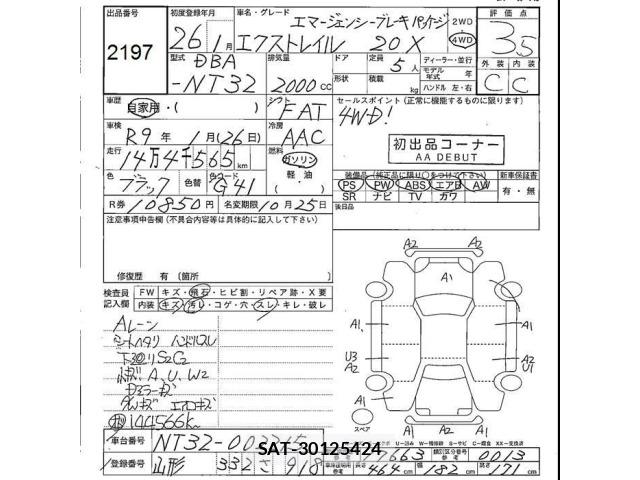 出品番号 初度登録年月 車名・グレード エマージェンシーブレーキパッケージ 2WD 4WD 評価点
2197 26年1月 エクストレイル 20X 3.5
型式 DBA-NT32 排気量 2000cc ドア 形状 定員 5人 積載 kg ディーラー・並行 モデル年式 年 ハンドル 左・右 外装 内装 C C
車歴 自家用・( ) シフト FAT セールスポイント (正常に機能するものに限ります)
4WD!
車検 R9年1月(26日) 冷房 AAC
初出品コーナー
AA DEBUT
走行 14万4千565km 燃料 ガソリン 軽油 ・( )
色 ブラック 色替 色コード G41 装備品 (純正品に限り○をつけて下さい) 新車保証書
PS PW ABS エアB AW 有・無
SR ナビ TV カワ
R券 10850円 名変期限 10月25日 後日品
注意事項申告欄 (不具合内容等は具体的に記入して下さい)
修復歴 有 〔箇所 〕
検査員 記入欄 FW キズ・飛石・ヒビ割・リペア跡・X要
内装 キズ・汚レ・コゲ・穴・スレ・キレ・破レ
Aレーン
シートヘタリ ハンドルスレ
下廻りS2C2
A, U, W2
ドアミラーキズ
AWキズ エアロキズ
144566km
A2 A2
A1
A1 A1
U3 A2
A2 U1
A1 A1
A2 A2
スペア
車台番号 NT32-00
SAT-30125424
登録番号 山形 332 さ 918
7663 類別区分番号 0013
長さ 464cm 幅 182cm 高さ 171cm